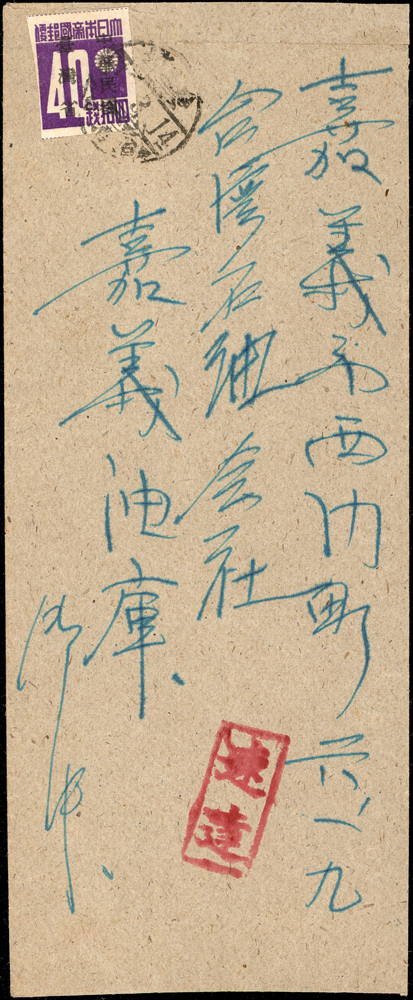 嘉義市西門町六ノ一九
台湾石油会社
嘉義油庫
御中
速達
大日本帝國郵便
中華民國
臺灣省
40
四拾錢
14